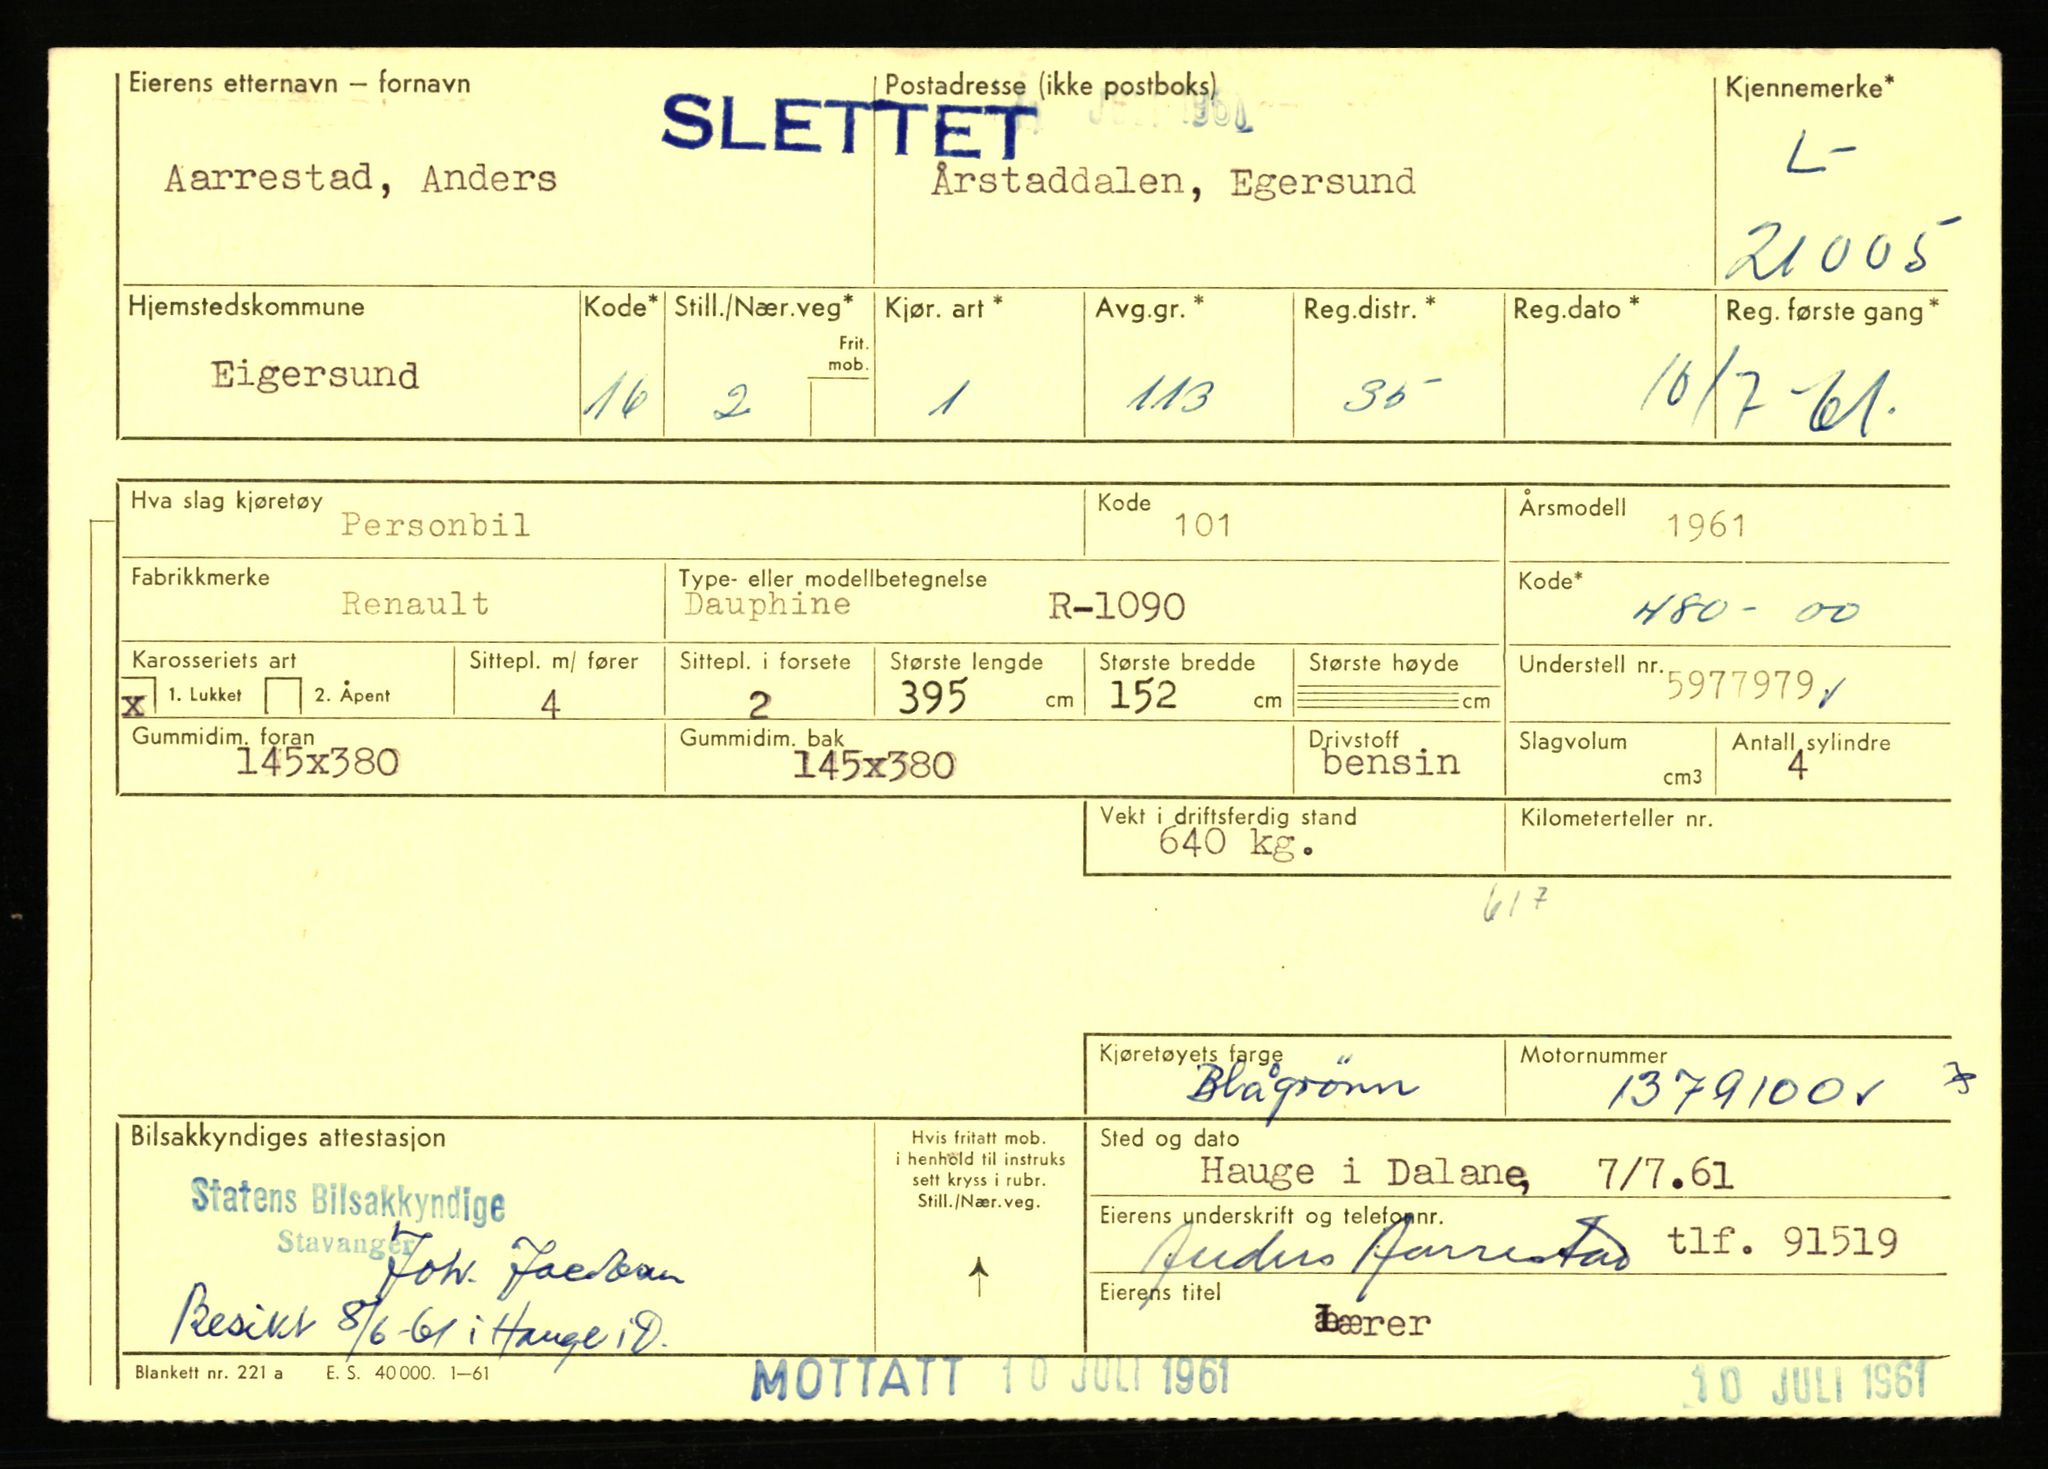 Eierens etternavn – fornavn
Postadresse (ikke postboks)
Kjennemerke*
SLETTET
1961
L-
Aarrestad, Anders
Årstaddalen, Egersund
21005
Hjemstedskommune
Kode*
Still./Nær.veg*
Kjør. art *
Avg.gr. *
Reg.distr. *
Reg.dato *
Reg. første gang *
Frit.
mob.
Eigersund
16
2
1
113
35
10/7-61.
Hva slag kjøretøy
Personbil
Kode
101
Årsmodell
1961
Fabrikkmerke
Renault
Type- eller modellbetegnelse
Dauphine R-1090
Kode*
480- 00
Karosseriets art
x 1. Lukket 2. Åpent
Sittepl. m/ fører
4
Sittepl. i forsete
2
Største lengde
395 cm
Største bredde
152 cm
Største høyde
cm
Understell nr.
5977979
Gummidim. foran
145x380
Gummidim. bak
145x380
Drivstoff
bensin
Slagvolum
cm3
Antall sylindre
4
Vekt i driftsferdig stand
640 kg.
Kilometerteller nr.
617
Kjøretøyets farge
Blågrönn
Motornummer
1379100
Bilsakkyndiges attestasjon
Statens Bilsakkyndige
Stavanger
Joh. Jacobsen
Besikt 8/6-61 i Hauge i D.
Hvis fritatt mob.
i henhold til instruks
sett kryss i rubr.
Still./Nær.veg.
Sted og dato
Hauge i Dalane, 7/7.61
Eierens underskrift og telefonnr.
Anders Aarrestad tlf. 91519
Eierens titel
Lærer
Blankett nr. 221 a E. S. 40 000. 1–61
MOTTATT 10 JULI 1961
10 JULI 1961